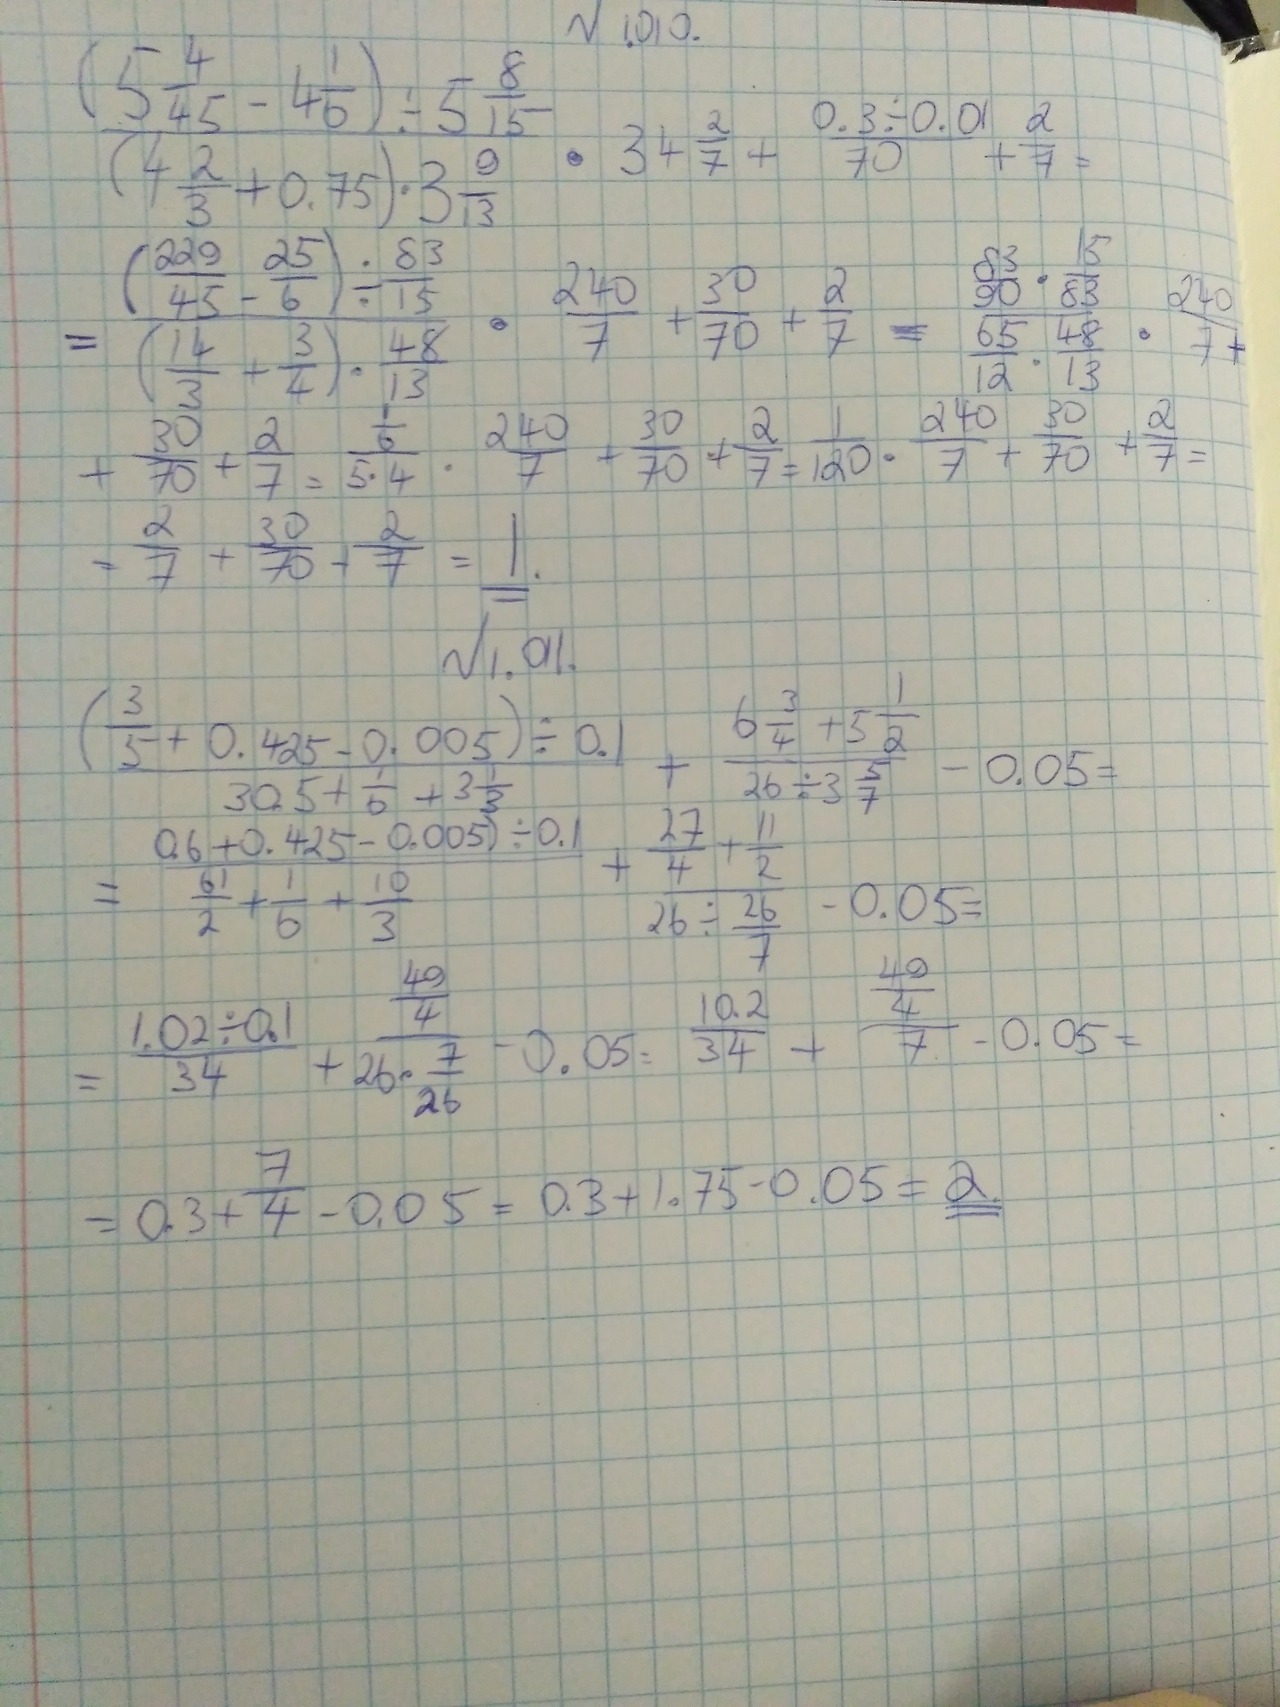 √ 1.010.
(5 4/45 - 4 1/6) ÷ 5 8/15 / (4 2/3 + 0.75) · 3 9/13 · 34 2/7 + 0.3÷0.01/70 + 2/7 =
= (229/45 - 25/6) ÷ 83/15 / (14/3 + 3/4) · 48/13 · 240/7 + 30/70 + 2/7 = 83/90 · 15/83 / 65/12 · 48/13 · 240/7 +
+ 30/70 + 2/7 = 1/6 / 5·4 · 240/7 + 30/70 + 2/7 = 1/120 · 240/7 + 30/70 + 2/7 =
= 2/7 + 30/70 + 2/7 = 1.
√ 1.011.
(3/5 + 0.425 - 0.005) ÷ 0.1 / 30.5 + 1/6 + 3 1/3 + 6 3/4 + 5 1/2 / 26 ÷ 3 5/7 - 0.05 =
= 0.6 + 0.425 - 0.005) ÷ 0.1 / 61/2 + 1/6 + 10/3 + 27/4 + 11/2 / 26 ÷ 26/7 - 0.05 =
= 1.02 ÷ 0.1 / 34 + 49/4 / 26 · 7/26 - 0.05 = 10.2/34 + 49/4 / 7 - 0.05 =
= 0.3 + 7/4 - 0.05 = 0.3 + 1.75 - 0.05 = 2.